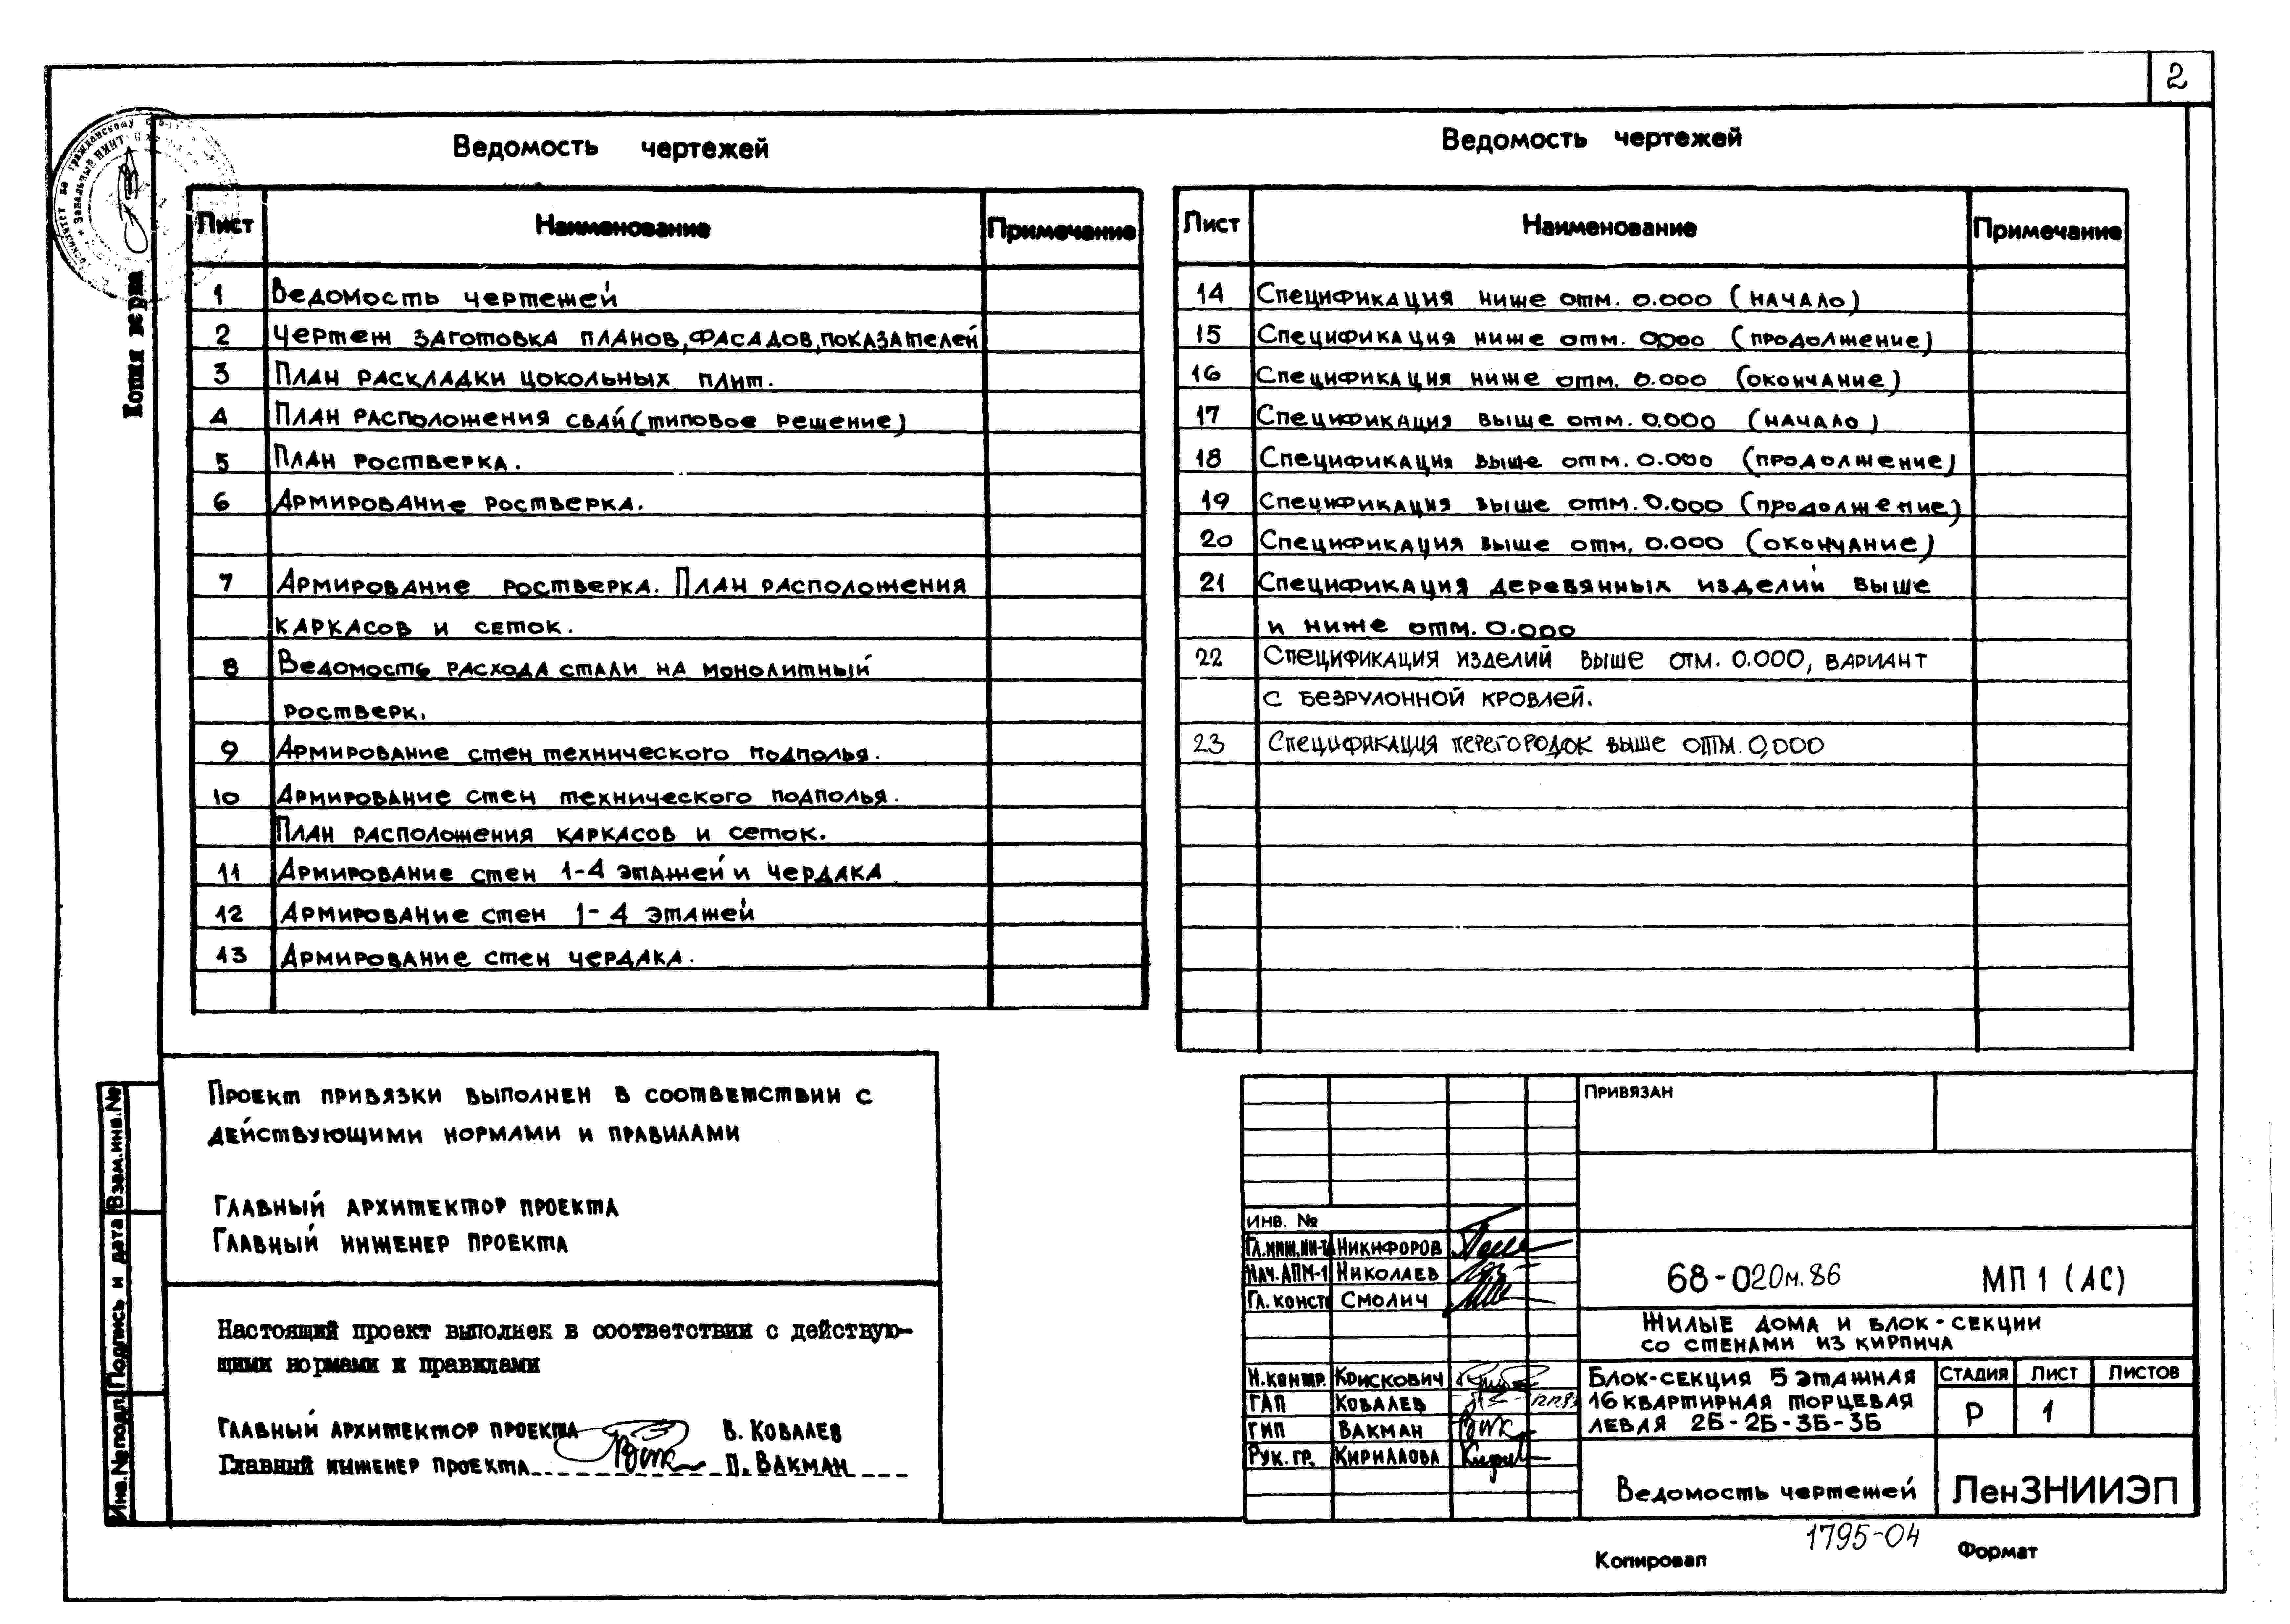 2
Ведомость чертежей
Лист Наименование Примечание
1 Ведомость чертежей
2 Чертеж заготовка планов, фасадов, показателей
3 План раскладки цокольных плит.
4 План расположения свай (типовое решение)
5 План ростверка.
6 Армирование ростверка.
7 Армирование ростверка. План расположения
каркасов и сеток.
8 Ведомость расхода стали на монолитный
ростверк.
9 Армирование стен технического подполья.
10 Армирование стен технического подполья.
План расположения каркасов и сеток.
11 Армирование стен 1-4 этажей и чердака
12 Армирование стен 1-4 этажей
13 Армирование стен чердака.
Ведомость чертежей
Лист Наименование Примечание
14 Спецификация ниже отм. 0.000 (начало)
15 Спецификация ниже отм. 0,000 (продолжение)
16 Спецификация ниже отм. 0.000 (окончание)
17 Спецификация выше отм. 0.000 (начало)
18 Спецификация выше отм. 0.000 (продолжение)
19 Спецификация выше отм. 0.000 (продолжение)
20 Спецификация выше отм. 0.000 (окончание)
21 Спецификация деревянных изделий выше
и ниже отм. 0.000
22 Спецификация изделий выше отм. 0.000, вариант
с безрулонной кровлей.
23 Спецификация перегородок выше отм. 0,000
Копия верна
Проект привязки выполнен в соответствии с
действующими нормами и правилами
Главный архитектор проекта
Главный инженер проекта
Настоящий проект выполнен в соответствии с действую-
щими нормами и правилами
Главный архитектор проекта В. Ковалев
Главный инженер проекта П. Вакман
Взам.инв.№
Подпись и дата
Инв.№подл.
Привязан
Инв. №
Гл.инж.ин-та Никифоров
Нач.АПМ-1 Николаев
Гл. конст Смолич
Н.контр. Крискович
ГАП Ковалев
ГИП Вакман
Рук. гр. Кириллова
68-020м.86 МП 1 (АС)
Жилые дома и блок-секции
со стенами из кирпича
Блок-секция 5 этажная
16 квартирная торцевая
левая 2Б-2Б-3Б-3Б
Стадия Лист Листов
Р 1
Ведомость чертежей
ЛенЗНИИЭП
1795-04
Копировал Формат